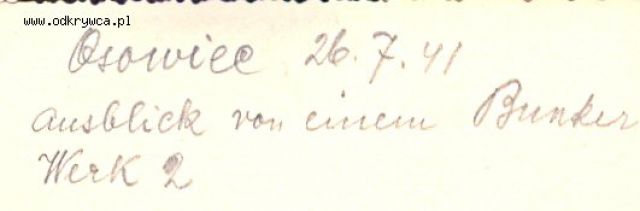 www.odkrywca.pl
Osowiec 26.7.41
ausblick von einem Bunker
Werk 2